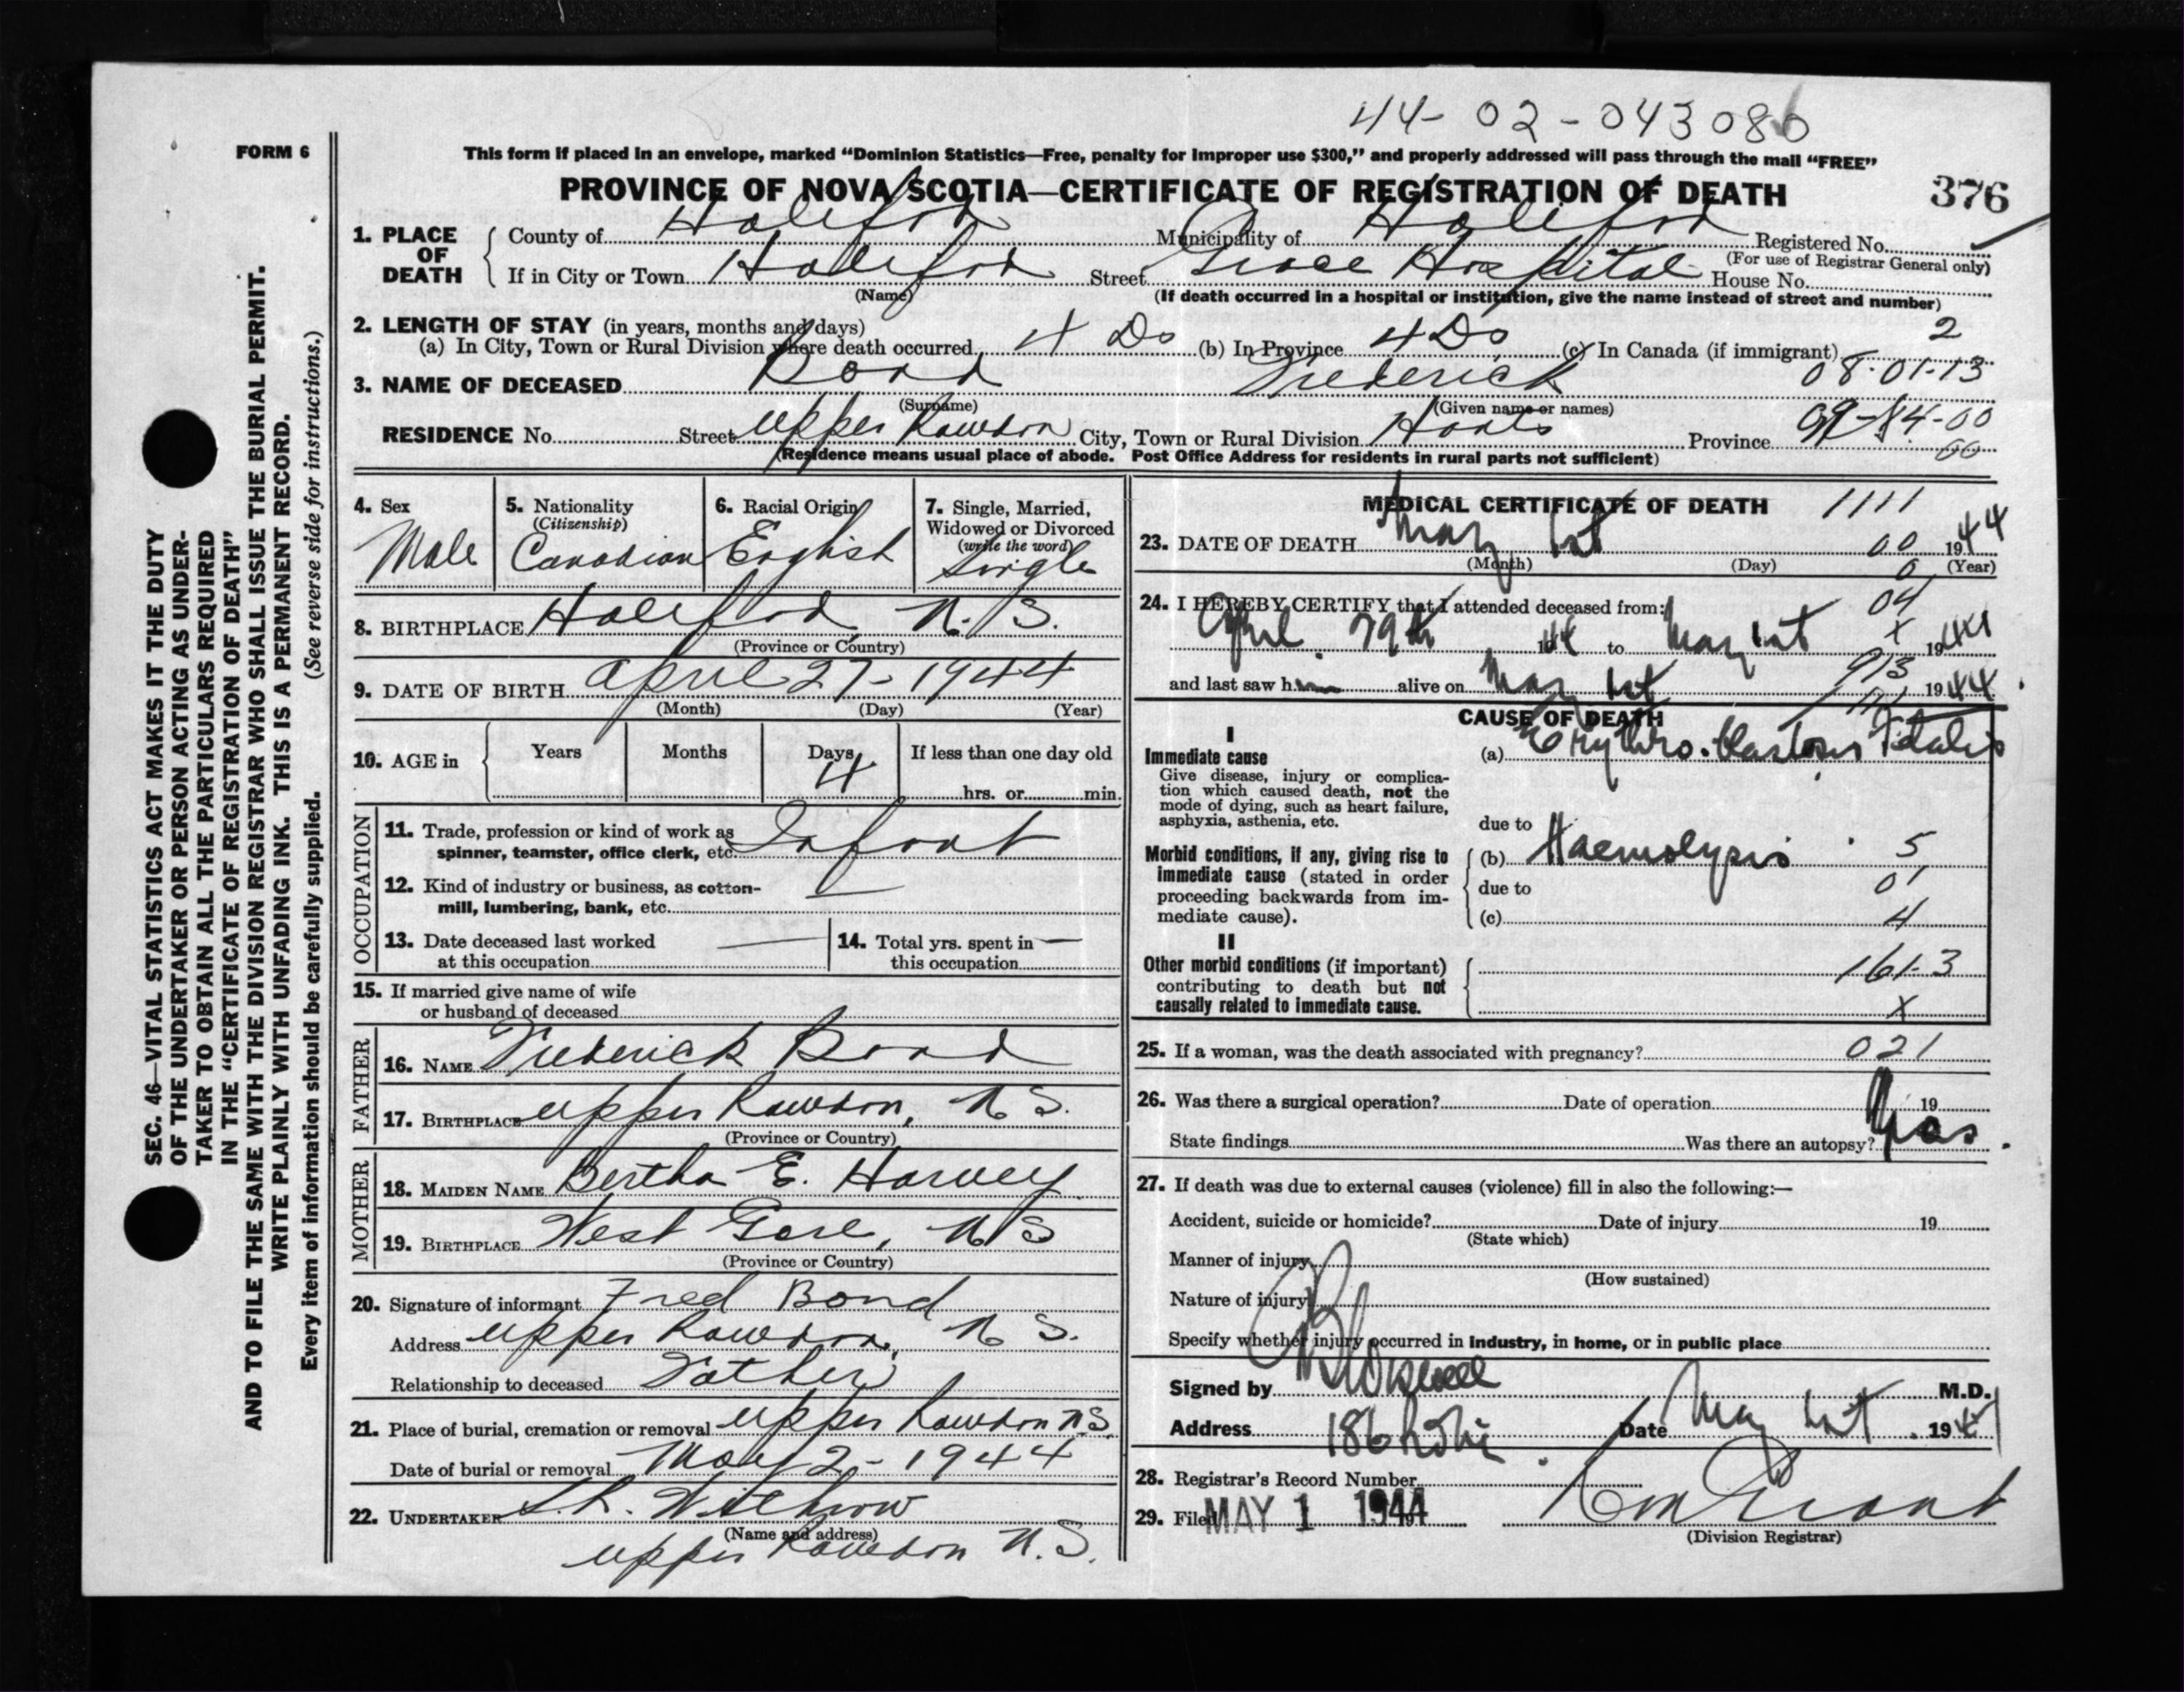 44-02-043086
FORM 6
This form if placed in an envelope, marked “Dominion Statistics—Free, penalty for improper use $300,” and properly addressed will pass through the mail “FREE”
PROVINCE OF NOVA SCOTIA—CERTIFICATE OF REGISTRATION OF DEATH
376
1. PLACE OF DEATH { County of Halifax Municipality of Halifax Registered No.
(For use of Registrar General only)
If in City or Town Halifax Street Grace Hospital House No.
(Name) (If death occurred in a hospital or institution, give the name instead of street and number)
2. LENGTH OF STAY (in years, months and days) 2
(a) In City, Town or Rural Division where death occurred 4 Ds (b) In Province 4 Ds (c) In Canada (if immigrant)
3. NAME OF DECEASED Bond Frederick 08-01-13
(Surname) (Given name or names)
RESIDENCE No. Street Upper Rawdon City, Town or Rural Division Hants Province 09-84-00
00
(Residence means usual place of abode. Post Office Address for residents in rural parts not sufficient)
4. Sex
Male
5. Nationality
(Citizenship)
Canadian
6. Racial Origin
English
7. Single, Married,
Widowed or Divorced
(write the word)
Single
8. BIRTHPLACE Halifax, N.S.
(Province or Country)
9. DATE OF BIRTH April 27-1944
(Month) (Day) (Year)
10. AGE in { Years Months Days If less than one day old
4 hrs. or min.
OCCUPATION
11. Trade, profession or kind of work as
spinner, teamster, office clerk, etc. Infant
12. Kind of industry or business, as cotton-
mill, lumbering, bank, etc.
13. Date deceased last worked
at this occupation
14. Total yrs. spent in
this occupation
15. If married give name of wife
or husband of deceased
FATHER
16. NAME Frederick Bond
17. BIRTHPLACE Upper Rawdon, N S.
(Province or Country)
MOTHER
18. MAIDEN NAME Bertha E. Harvey
19. BIRTHPLACE West Gore, N S
(Province or Country)
20. Signature of informant Fred Bond
Address Upper Rawdon, N S.
Relationship to deceased Father
21. Place of burial, cremation or removal Upper Rawdon N.S.
Date of burial or removal May 2-1944
22. UNDERTAKER Withrow
(Name and address)
Upper Rawdon N.S.
MEDICAL CERTIFICATE OF DEATH 1111
23. DATE OF DEATH May 1st 00 1944
(Month) (Day) (Year)
0
24. I HEREBY CERTIFY that I attended deceased from: 04
April 29th 1944 to May 1st X 1944
913
and last saw him alive on May 1st 1944
CAUSE OF DEATH
I
Immediate cause
Give disease, injury or complica-
tion which caused death, not the
mode of dying, such as heart failure,
asphyxia, asthenia, etc.
(a) Erythro-blastosis Fetalis
due to
Morbid conditions, if any, giving rise to
immediate cause (stated in order
proceeding backwards from im-
mediate cause).
(b) Haemolysis 5
due to 0
(c) 4
II
Other morbid conditions (if important)
contributing to death but not
causally related to immediate cause.
161-3
X
25. If a woman, was the death associated with pregnancy? 021
26. Was there a surgical operation? Date of operation 19
State findings Was there an autopsy? Yes.
27. If death was due to external causes (violence) fill in also the following:—
Accident, suicide or homicide? Date of injury 19
(State which)
Manner of injury
(How sustained)
Nature of injury
Specify whether injury occurred in industry, in home, or in public place
Signed by M.D.
Address 186 Date May 1st 1944
28. Registrar's Record Number
29. Filed MAY 1 1944
(Division Registrar)
SEC. 46—VITAL STATISTICS ACT MAKES IT THE DUTY
OF THE UNDERTAKER OR PERSON ACTING AS UNDER-
TAKER TO OBTAIN ALL THE PARTICULARS REQUIRED
IN THE “CERTIFICATE OF REGISTRATION OF DEATH”
AND TO FILE THE SAME WITH THE DIVISION REGISTRAR WHO SHALL ISSUE THE BURIAL PERMIT.
WRITE PLAINLY WITH UNFADING INK. THIS IS A PERMANENT RECORD.
Every item of information should be carefully supplied. (See reverse side for instructions.)